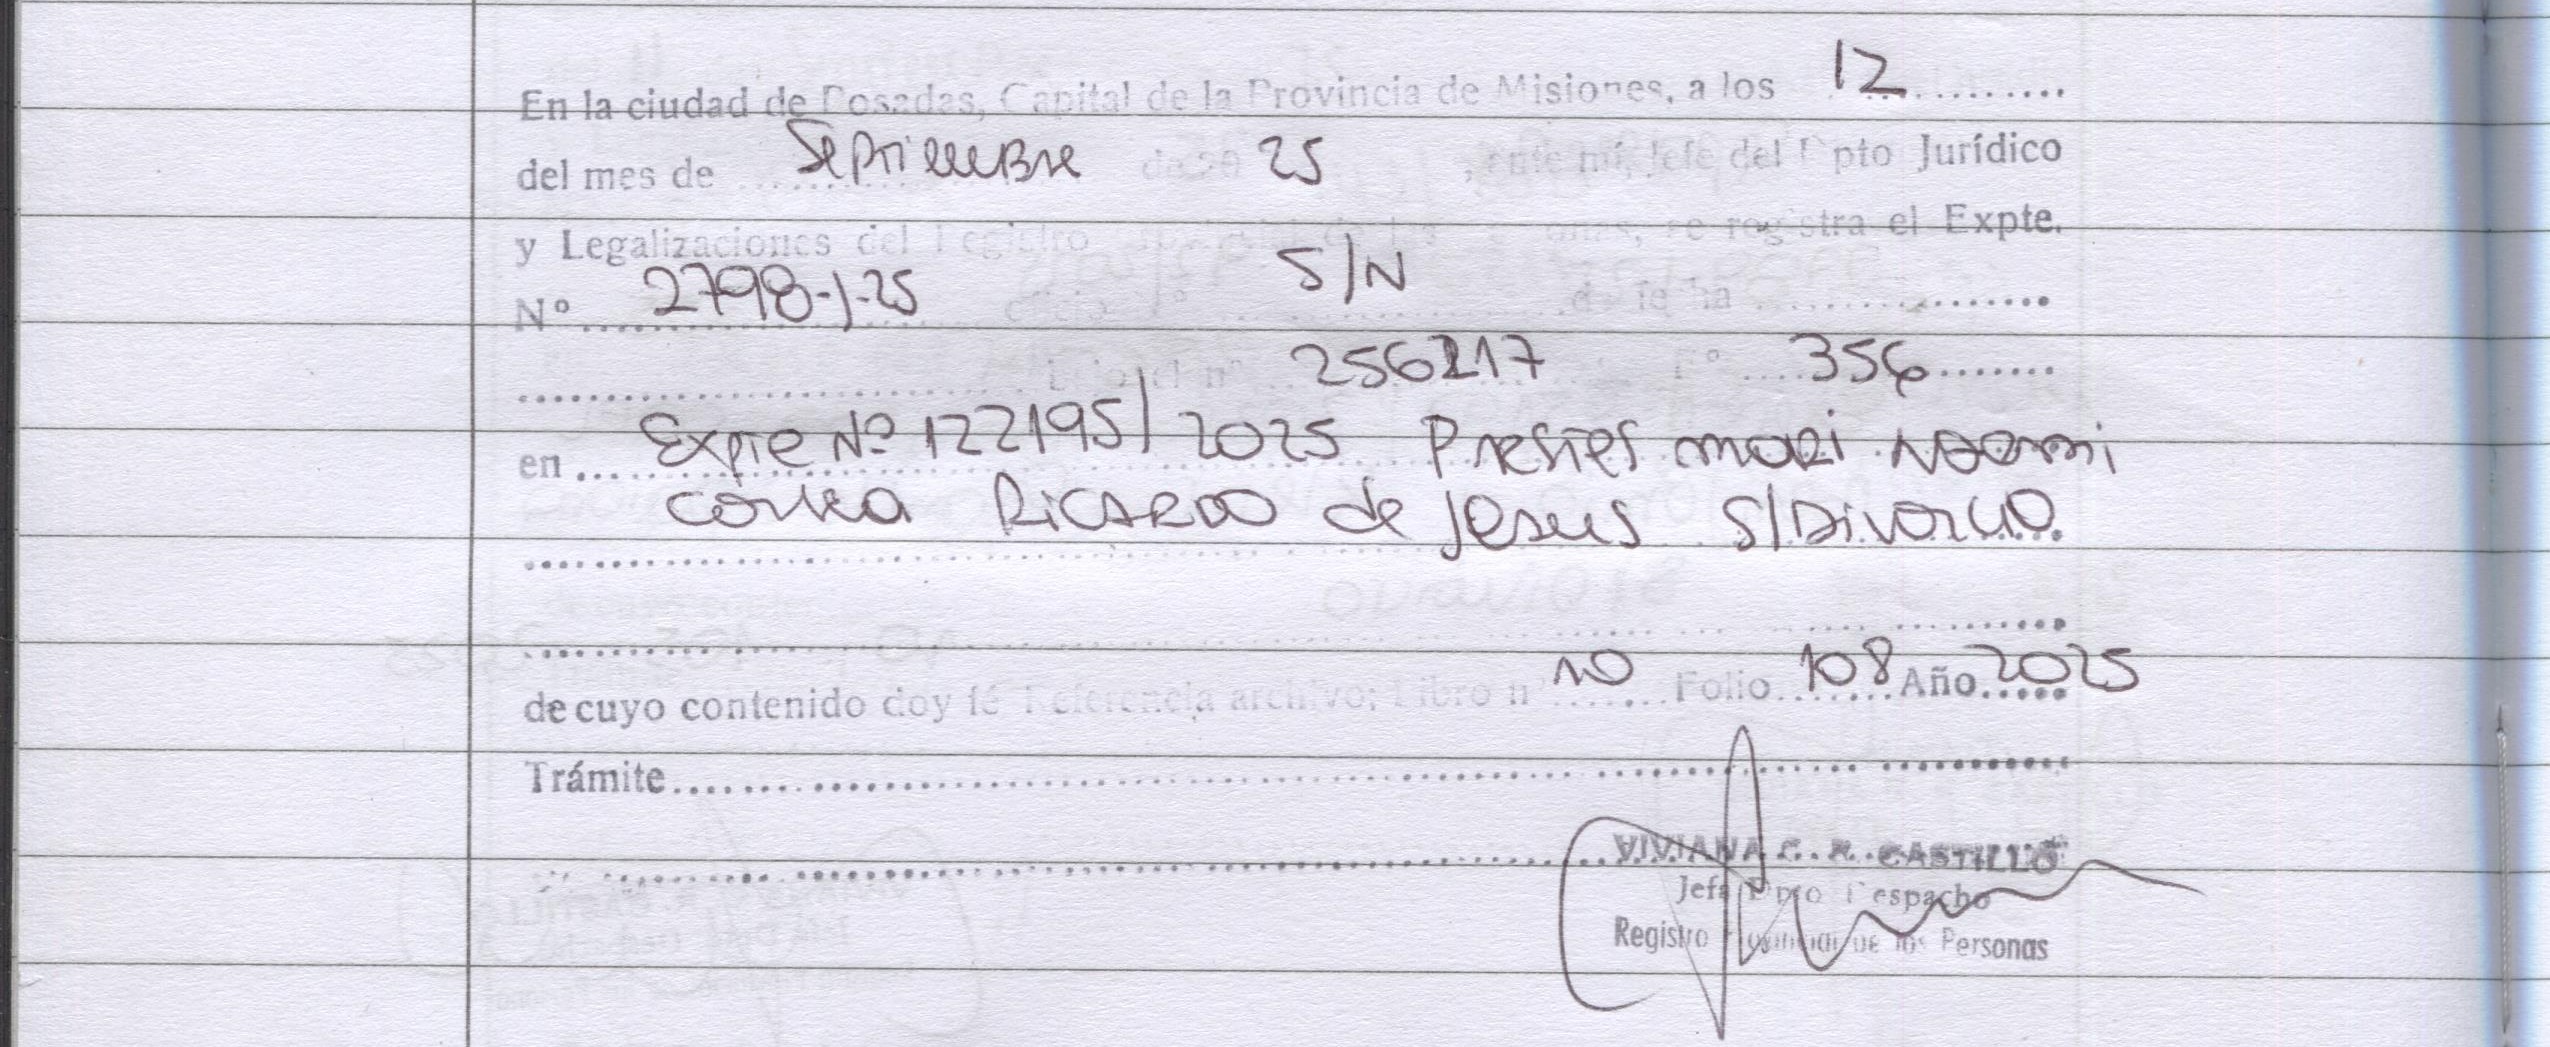 En la ciudad de Posadas, Capital de la Provincia de Misiones, a los 12
del mes de Septiembre de 20 25, ante mí, Jefe del Dpto Jurídico
y Legalizaciones del Registro de las Personas, se registra el Expte.
Nº 2798-J-25 oficio Nº S/N de fecha
nº 256217 Fº 356
en Expte Nº 122195/2025 Prestes mari Noemi
correa RiCARDO de Jesus S/Divorcio
de cuyo contenido doy fé Referencia archivo: Libro nº 10 Folio 108 Año 2025
Trámite
VIVIANA C. R. CASTILLO
Jefa Dpto Despacho
Registro Provincial de las Personas